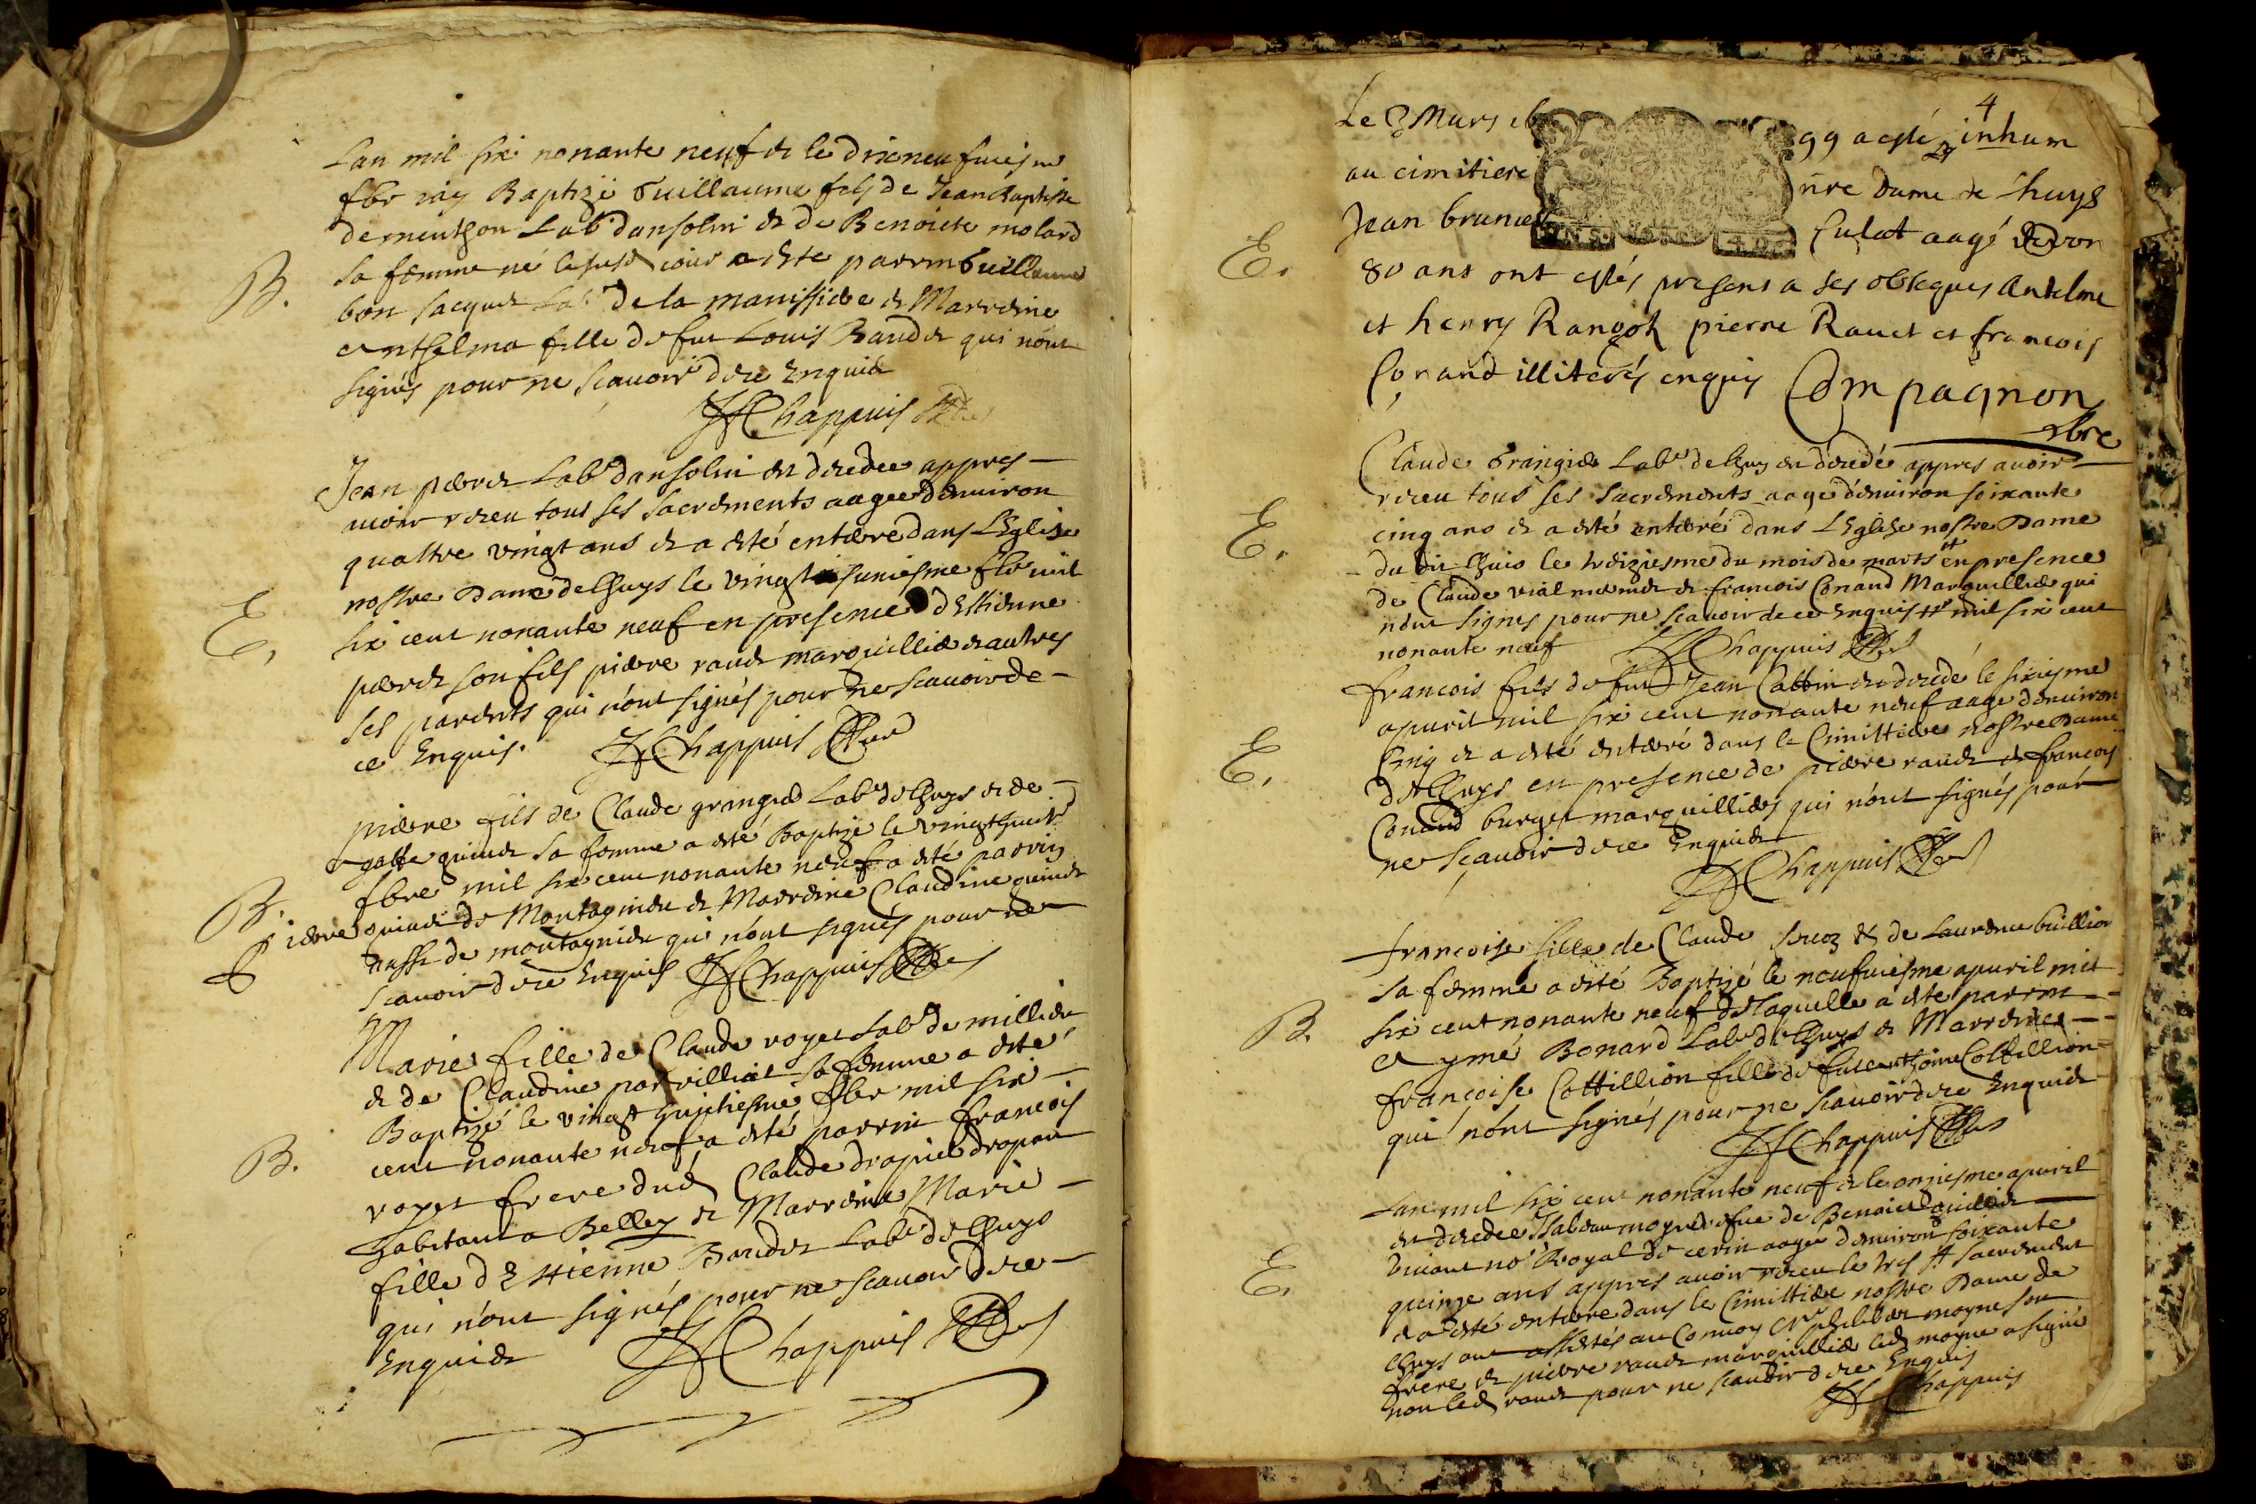 Lan mil six nonante neuf & le dixneufuiesme
fbr iay Baptizé Guillaume fils de Jean Baptiste
dementhon Lab.r dansolin & de Benoiste molard
B.
sa femme né le susd jour a este parrin Guillaume
bon Jacquet Lab.r de la
& Marreine
anthelma fille de feu Louis Baudet qui nont
signés pour ne scauoir dece Enquis
Chappuis
Jean perret Lab.r dansolin est decedee appres
auoir receu tous ses sacrements aagee denuiron
quattre vingt ans & a esté enterre dans LEglise
nostre Dame de Lhuys le vingt uniesme fbr mil
E.
six cent nonante neuf en presence dEstienne
perret son fils pierre raudt marguillier & autres
ses parents qui nont signés pour ne scauoir de
ce Enquis. Chappuis
pierre fils de Claude grangier Lab.r de Lhuys & de
sa femme a esté Baptizé le vingthuit
B.
fbre mil six cent nonante neuf a esté parrin
pierre quinet de Montagnieu & Marreine Claudine quinet
aussi de montagnieu qui nont signés pour ne
scauoir dece Enquis Chappuis
Marie fille de Claude royet Lab.r de millieu
& de Claudine parvilliat sa femme a esté
Baptizé le vingt huictiesme fbr mil six
B.
cent nonante neuf a esté parrin francois
royet frere dud Claude drapier drapan
habitant a Belley & Marreine Marie
fille dEstienne Baudet Lab.r de Lhuys
qui nont signés pour ne scauoir dece
Enquis Chappuis
4
Le 3 Mars 16 99 a esté inhum
au cimitiere nre Dame de Lhuys
Jean brunet Culat aagé denvon
E.
80 ans ont estés presens a ses obseques Antelme
et henry Rangoz pierre Rauet et francois
Conand illiterés enquis Compagnon
vbre
Claude Grangier Lab.r de Lhuys est decedé appres auoir
receu tous ses sacrements aage denuiron soixante
E.
cinq ans & a esté enterré dans LEglise nostre Dame
du dit Lhuis le treiziesme du mois de marts en presence
de Claude vial & francois Conand Marguillier qui
nont signes pour ne scauoir dece Enquis mil six cent
nonante neuf Chappuis
francois fils de feu Jean Cottin est decedé le sixiesme
apuril mil six cent nonante neuf aage denuiron
E.
Cinq & a esté enterré dans le Cimittiere nostre Dame
de Lhuys en presence de pierre raudt & francois
Conand burget marguilliers qui nont signés pour
ne scauoir dece Enquis
Chappuis
francoise fille de Claude & de Laurence buillion
sa femme a esté Baptizé le neufuiesme apuril mil
B.
six cent nonante neuf de laquelle a este parrin
Aymé Bonard Lab.r de Lhuys & Marreine
francoise Cottillion fille de feu anthoine Cottillion
qui nont signés pour ne scauoir dece Enquis
Chappuis
Lan mil six cent nonante neuf & le onziesme apuril
est decedee Isabeau moyne vefue de Benoict
viuant no.re Royal de cerin aagee denuiron soixante
E.
quinze ans appres auoir receu le tres st sacrement
& a esté enterre dans le Cimittiere nostre Dame de
Lhuys ont assistés au Conuoy Philibert moyne son
frere & pierre raudt marguillier led moyne a signé
non led raudt pour ne scauoir dece Enquis
Chappuis